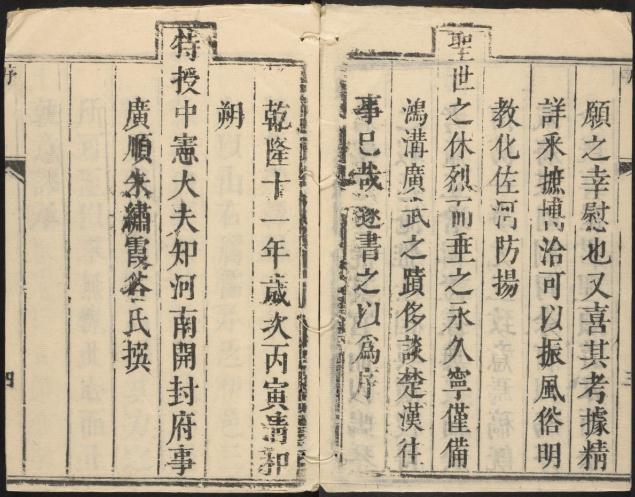 願之幸慰也又喜其考據精
詳采摭博洽可以振風俗明
教化佐河防揚
聖世之休烈而垂之永久寧僅備
鴻溝廣武之蹟侈談楚漢往
事巳哉遂書之以為序
乾隆十一年歲次丙寅清和
朔
特授中憲大夫知河南開封府事
廣順朱繡霞谷氏撰
四